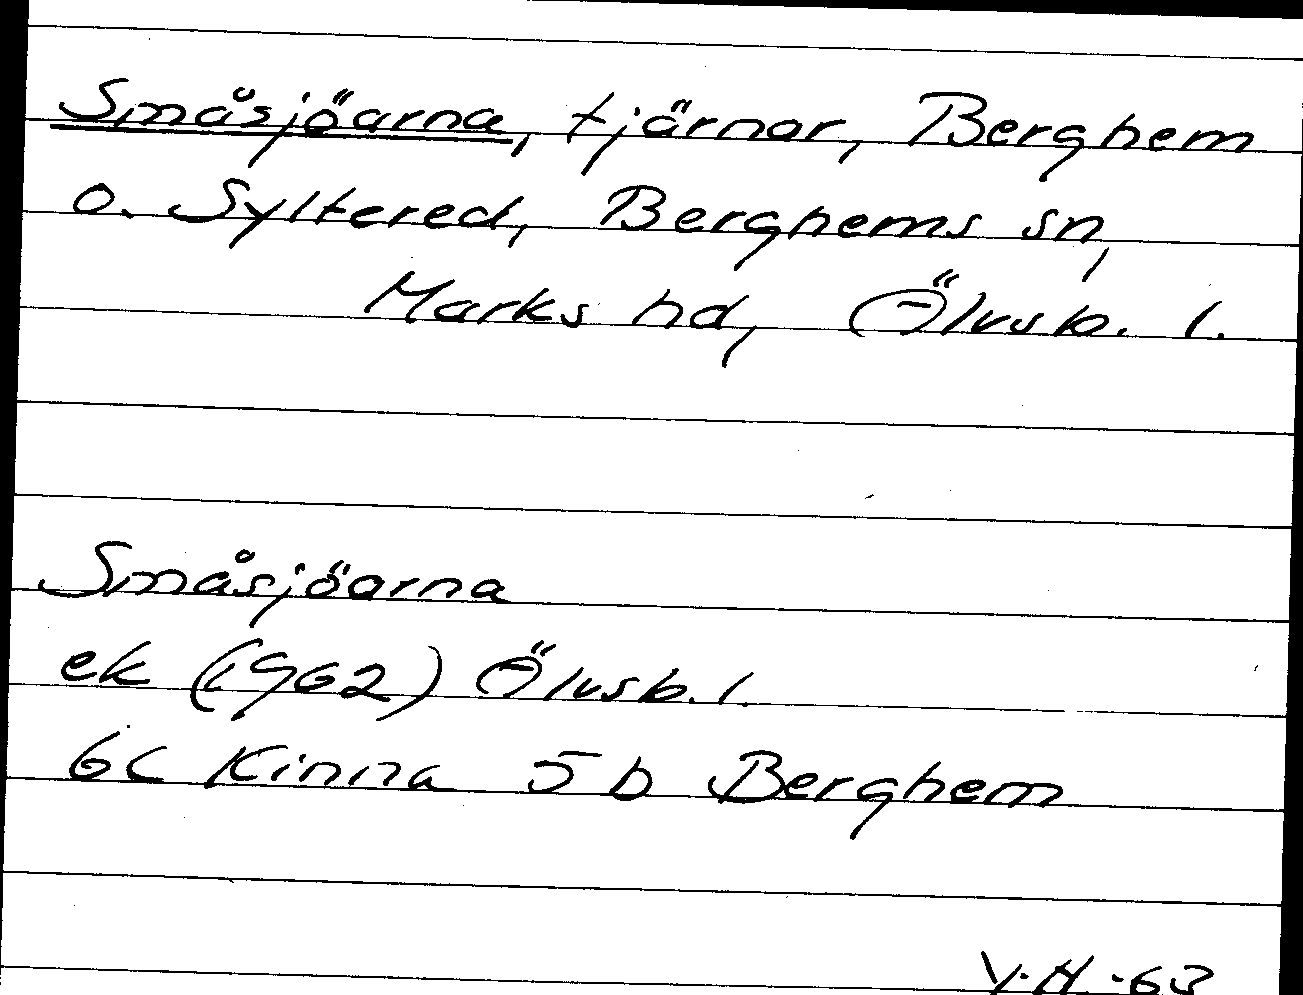 Småsjöarna, tjärnar, Berghem
o. Syltered, Berghems sn,
Marks hd, Älvsb. l.
Småsjöarna
ek (1962) Älvsb. l.
6C Kinna 5b Berghem
V.H. -63